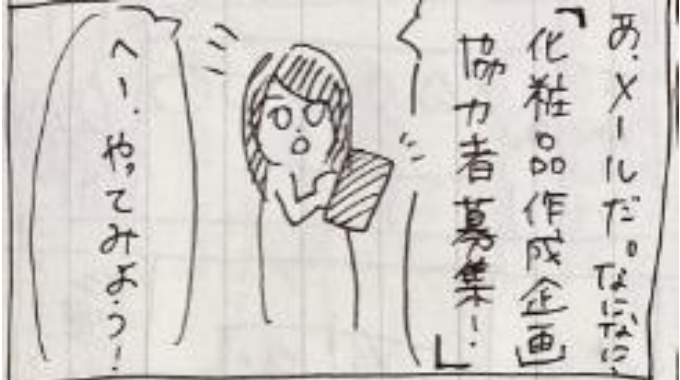 あ、メールだ。なになに、
「化粧品作成企画
協力者募集!」
へー、やってみよう!